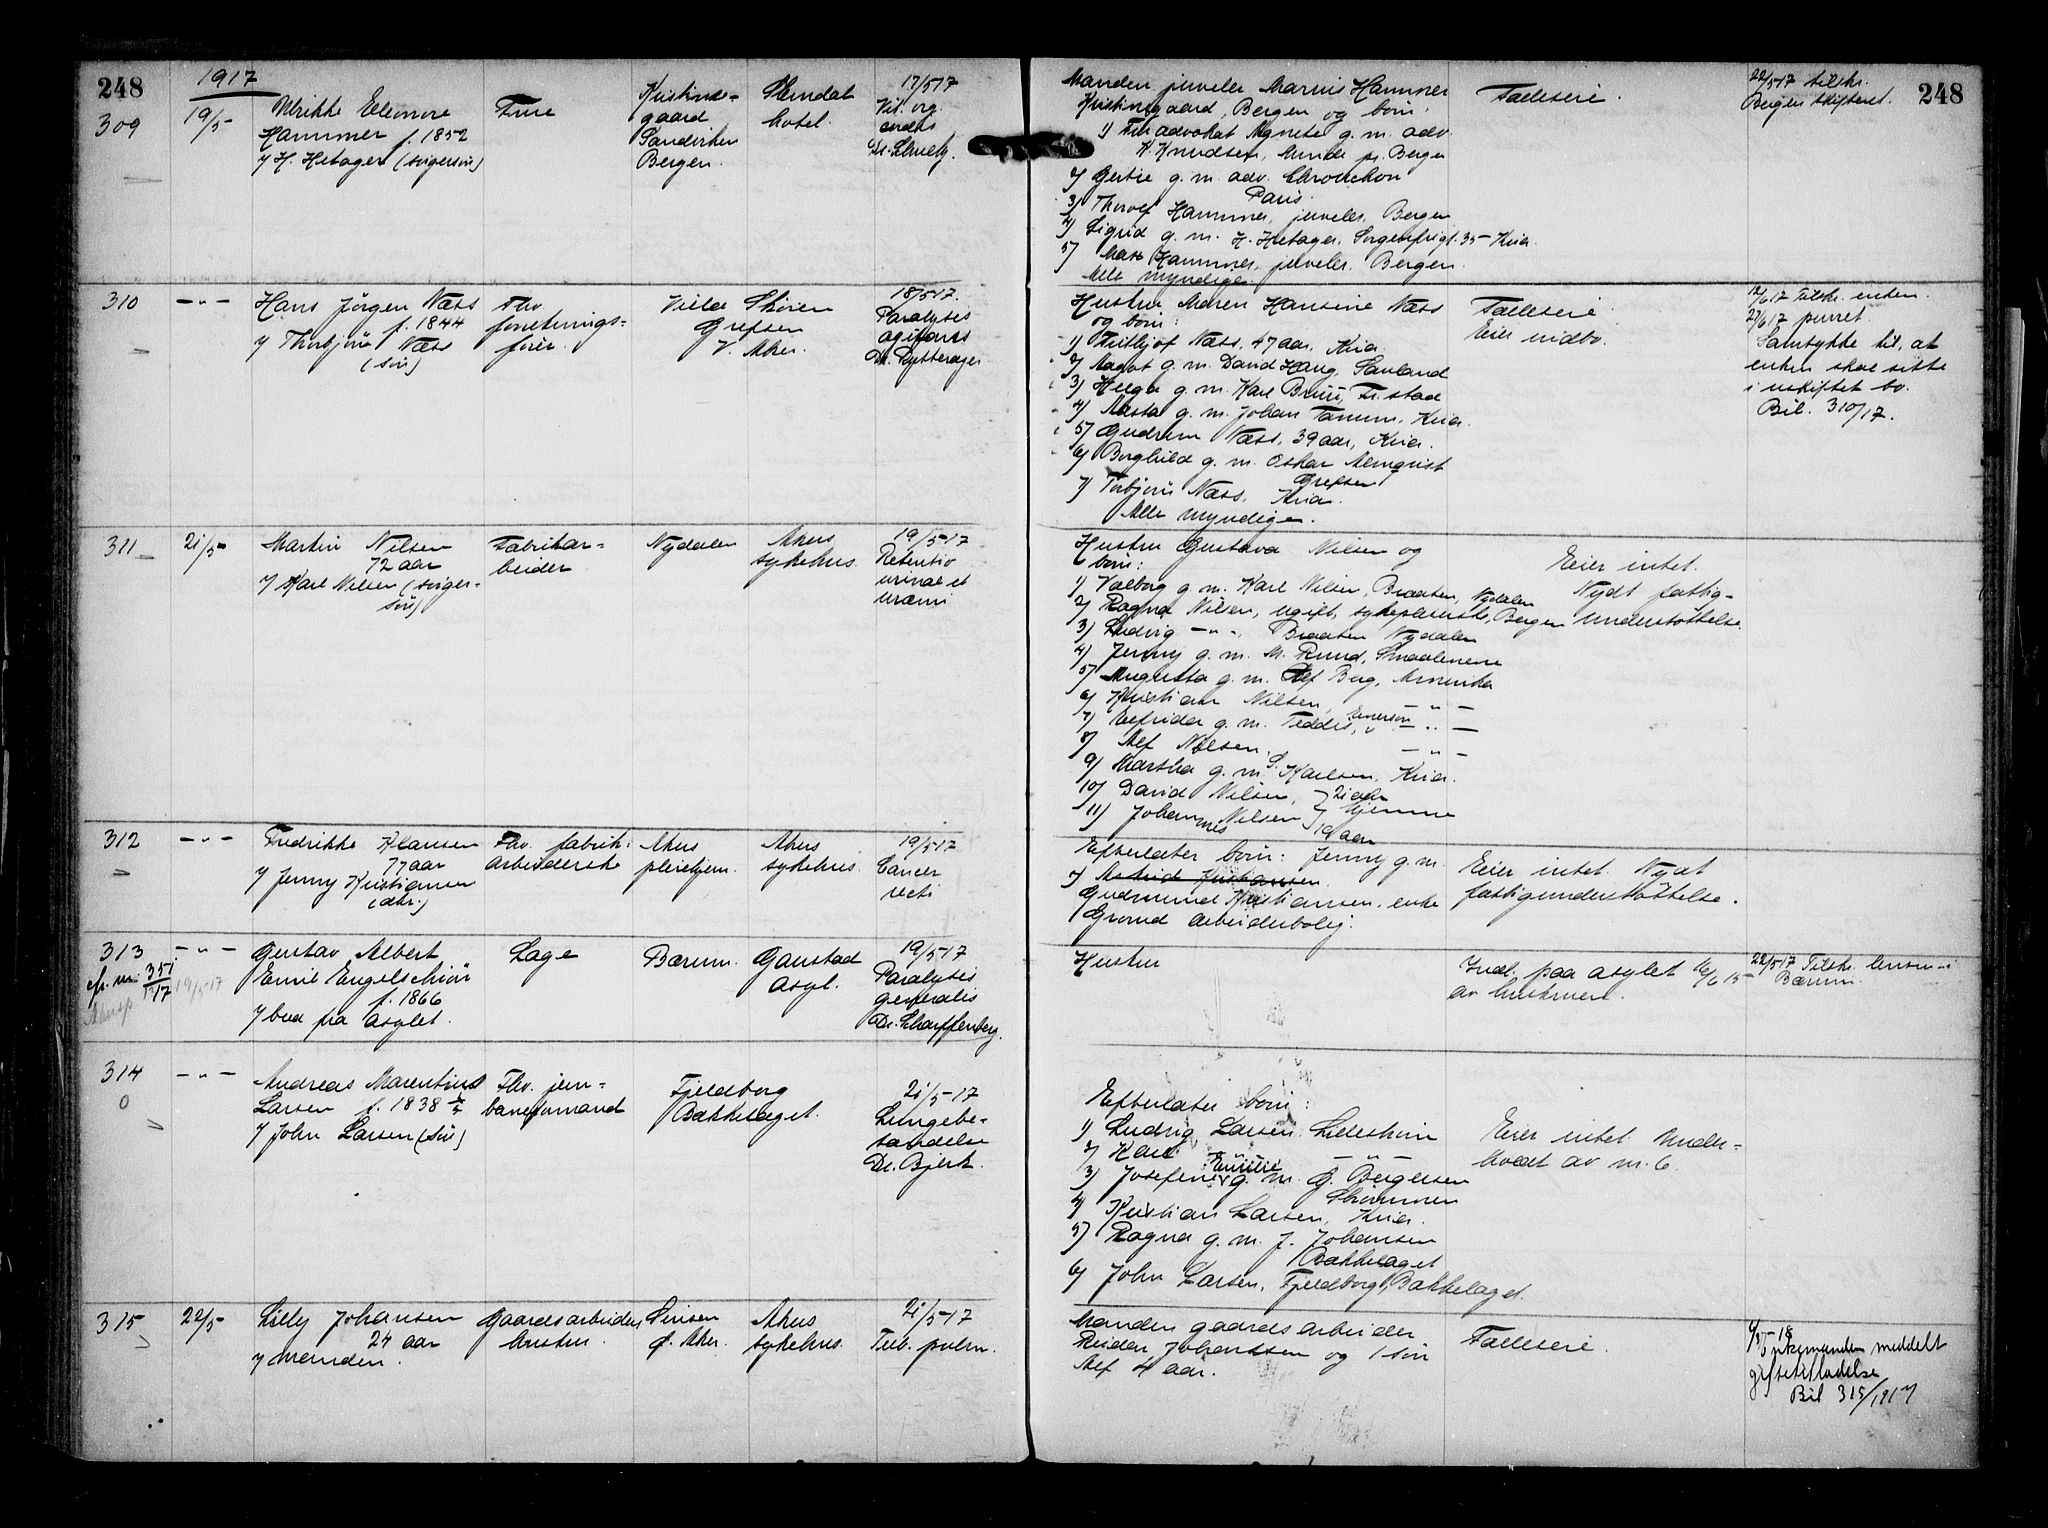 248
1917
309
19/5
Ulrikke Eleonore
Hammer f. 1852
v/ H. Hetager (svigersøn)
Frue
Kristine-
gaard
Sandviken
Bergen.
Slemdal
hotel.
17/5 17
Vit. org.
cordis
Manden juveler Marius Hammer
Kristinegaard, Bergen og børn:
1) Fru advokat Agnete g. m. adv.
K. Knudsen, Minde pr. Bergen
2) Gertie g. m. adv.
Paris.
3) Thorolf Hammer, juveler, Bergen
4) Sigrid g. m. H. Hetager, Sorgenfrigt. 35 - Kria.
5) Max Hammer, juveler, Bergen.
Alle myndige.
Fælleseie.
22/5 17 tilskr.
Bergen skifteret.
248
310
— " —
Hans Jørgen Næss
f. 1844
v/ Thorbjørn Næss
(søn)
Fhv.
forretnings-
fører.
Villa Skoien
Grefsen
V. Aker.
18/5 17.
Paralysis
agitans
Dr. Rytterager
Hustru Maren Hansine Næss
og børn:
1) Fritjof Næss, 47 aar, Kria.
2) Aagot g. m. David Haug, Sauland
3) Helga g. m. Karl Bruu, Fr.stad
4) Aasta g. m. Johan Tamm, Kria.
5) Gudrun Næss, 39 aar, Kria.
6) Borghild g. m. Oskar Almqvist
Grefsen
7) Torbjørn Næss, Kria.
Alle myndige.
Fælleseie.
Eier indbo.
12/6 17 Tilskr. enken.
27/6 17 purret.
Samtykke til, at
enken skal sitte
i uskiftet bo.
Bil. 310/17.
311
21/5
Martin Nilsen
72 aar
v/ Karl Nilsen (sviger-
søn)
Fabrikar-
beider
Nydalen
Akers
sykehus.
19/5 17
Retentio
urinae et
uræmi
Hustru Gustava Nilsen og
børn:
1) Valborg g. m. Karl Nilsen, Braaten, Nydalen
2) Ragna Nilsen, ugift, sykepleierske, Bergen
3) Ludvig — " — Braaten Nydalen
4) Jenny g. m. M. Rund, Smaalenene
5) Augusta g. m. Alf Berg, Amerika
6) Kristian Nilsen, — " —
7) Elfrida g. m. Teddis Emerson, — " —
8) Alf Nilsen, — " —
9) Martha g. m. S. Karlsen, Kria.
10) David Nilsen, 21 aar
11) Johannes Nilsen 19 aar } hjemme
Eier intet.
Nydt fattig-
understøttelse.
312
— " —
Fredrikke Klausen
77 aar
v/ Jenny Kristiansen
(dtr.)
Fhv. fabrik-
arbeiderske
Akers
pleiehjem.
Akers
sykehus.
19/5 17
Cancer
recti
Efterlater børn: Jenny g. m.
Gudmund Kristiansen, enke
Grorud arbeiderbolig.
Eier intet. Nydt
fattigunderstøttelse.
313
cfr. nr. 351/17
19/5 17
— " —
Gustav Albert
Emil Engelschiøn
f. 1866
v/ bud fra asylet.
Læge
Bærum.
Gaustad
Asyl.
19/5 17
Paralysis
generalis
Dr. Scharffenberg.
Hustru
Indl. paa asylet 16/6 15
av hustruen.
22/5 17 Tilskr. lensm. i
Bærum.
314
0
— " —
Andreas Marentius
Larsen f. 1838
v/ John Larsen (søn)
Fhv. jern-
baneformand
Fjeldborg
Bækkelaget.
21/5 - 17
Lungebe-
tændelse
Dr. Bjerk.
Efterlater børn:
1) Ludvig Larsen, Lilleström
2) Karl " — " —
3) Josefine Emilie g. m. G. Bergersen
Strømmen
4) Kristian Larsen, Kria.
5) Ragna g. m. J. Johansen
Bækkelaget
6) John Larsen, Fjeldborg, Bækkelaget.
Eier intet. Under-
holdt av nr. 6.
315
22/5
Lilly Johansen
24 aar
v/ manden.
Gaardsarbeider
hustru.
Linsen
Ø. Aker.
Akers
sykehus.
21/5 - 17
Tub. pulm.
Manden gaardsarbeider
Reidar Johanssen og 1 søn
Alf 4 aar.
Fælleseie.
Enkemanden meddelt
giftetilladelse
Bil 315/1917